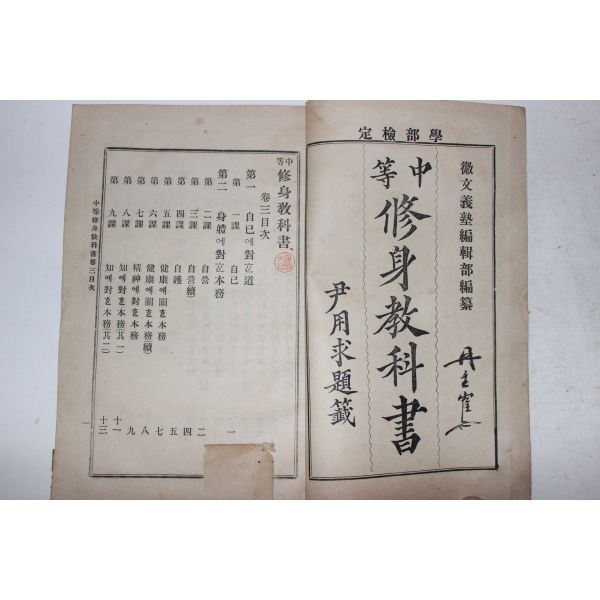 學部檢定
徽文義塾編輯部編纂
中等
修身教科書
尹用求題籤
中等修身教科書
卷三目次
第一 自己에對ᄒᆞᄂᆞᆫ道
第一課 自己 一
第二 身體에對ᄒᆞᄂᆞᆫ本務
第二課 自營 二
第三課 自營(續) 四
第四課 自護 五
第五課 健康에關ᄒᆞᆫ本務 七
第六課 健康에關ᄒᆞᆫ本務(續) 八
第七課 精神에對ᄒᆞᆫ本務 九
第八課 知에對ᄒᆞᆫ本務(其一) 十一
第九課 知에對ᄒᆞᆫ本務(其二) 十三
中等修身教科書卷三目次
一